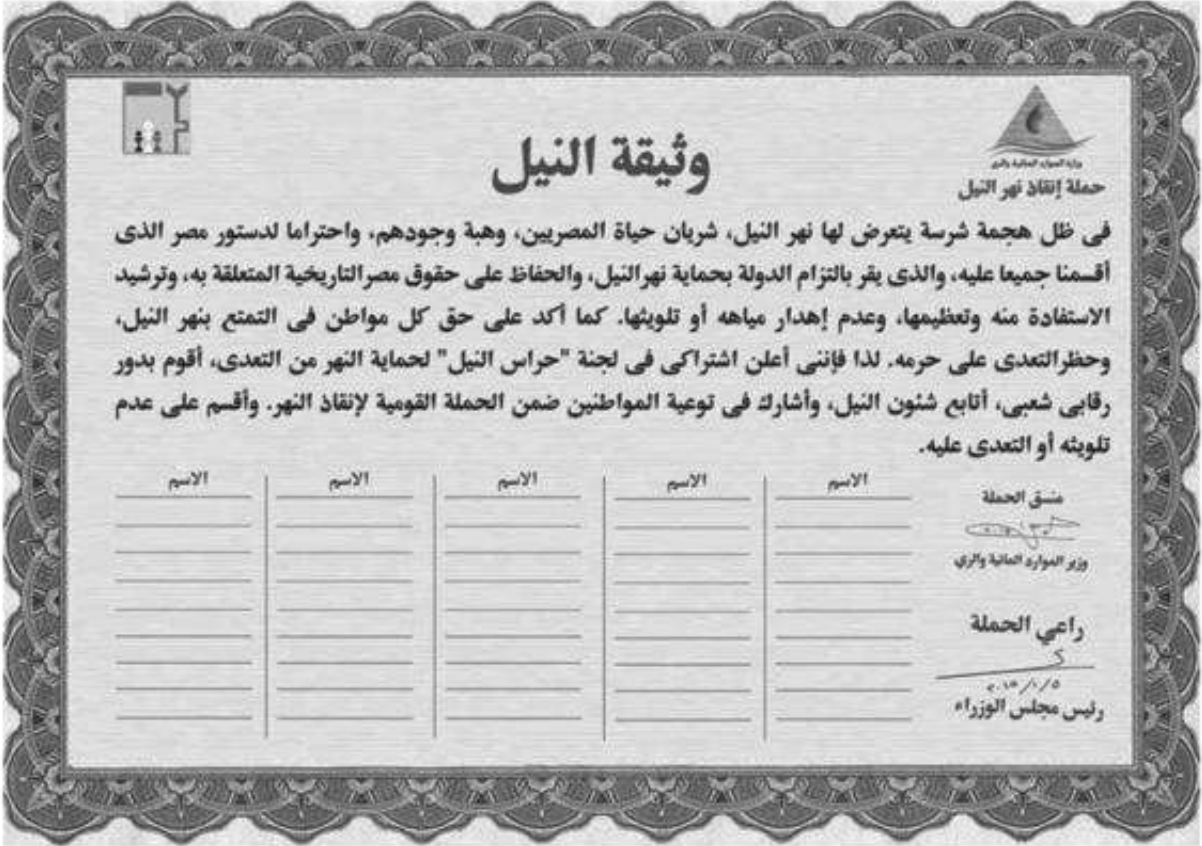 وزارة الموارد المائية والري
حملة إنقاذ نهر النيل
وثيقة النيل
فى ظل هجمة شرسة يتعرض لها نهر النيل، شريان حياة المصريين، وهبة وجودهم، واحتراما لدستور مصر الذى
أقسمنا جميعا عليه، والذى يقر بالتزام الدولة بحماية نهرالنيل، والحفاظ على حقوق مصرالتاريخية المتعلقة به، وترشيد
الاستفادة منه وتعظيمها، وعدم إهدار مياهه أو تلويثها. كما أكد على حق كل مواطن فى التمتع بنهر النيل،
وحظرالتعدى على حرمه. لذا فإننى أعلن اشتراكى فى لجنة "حراس النيل" لحماية النهر من التعدى، أقوم بدور
رقابى شعبى، أتابع شئون النيل، وأشارك فى توعية المواطنين ضمن الحملة القومية لإنقاذ النهر. وأقسم على عدم
تلويثه أو التعدى عليه.
الاسم الاسم الاسم الاسم الاسم
منسق الحملة
وزير الموارد المائية والري
راعي الحملة
٢٠١٥/١/٥
رئيس مجلس الوزراء